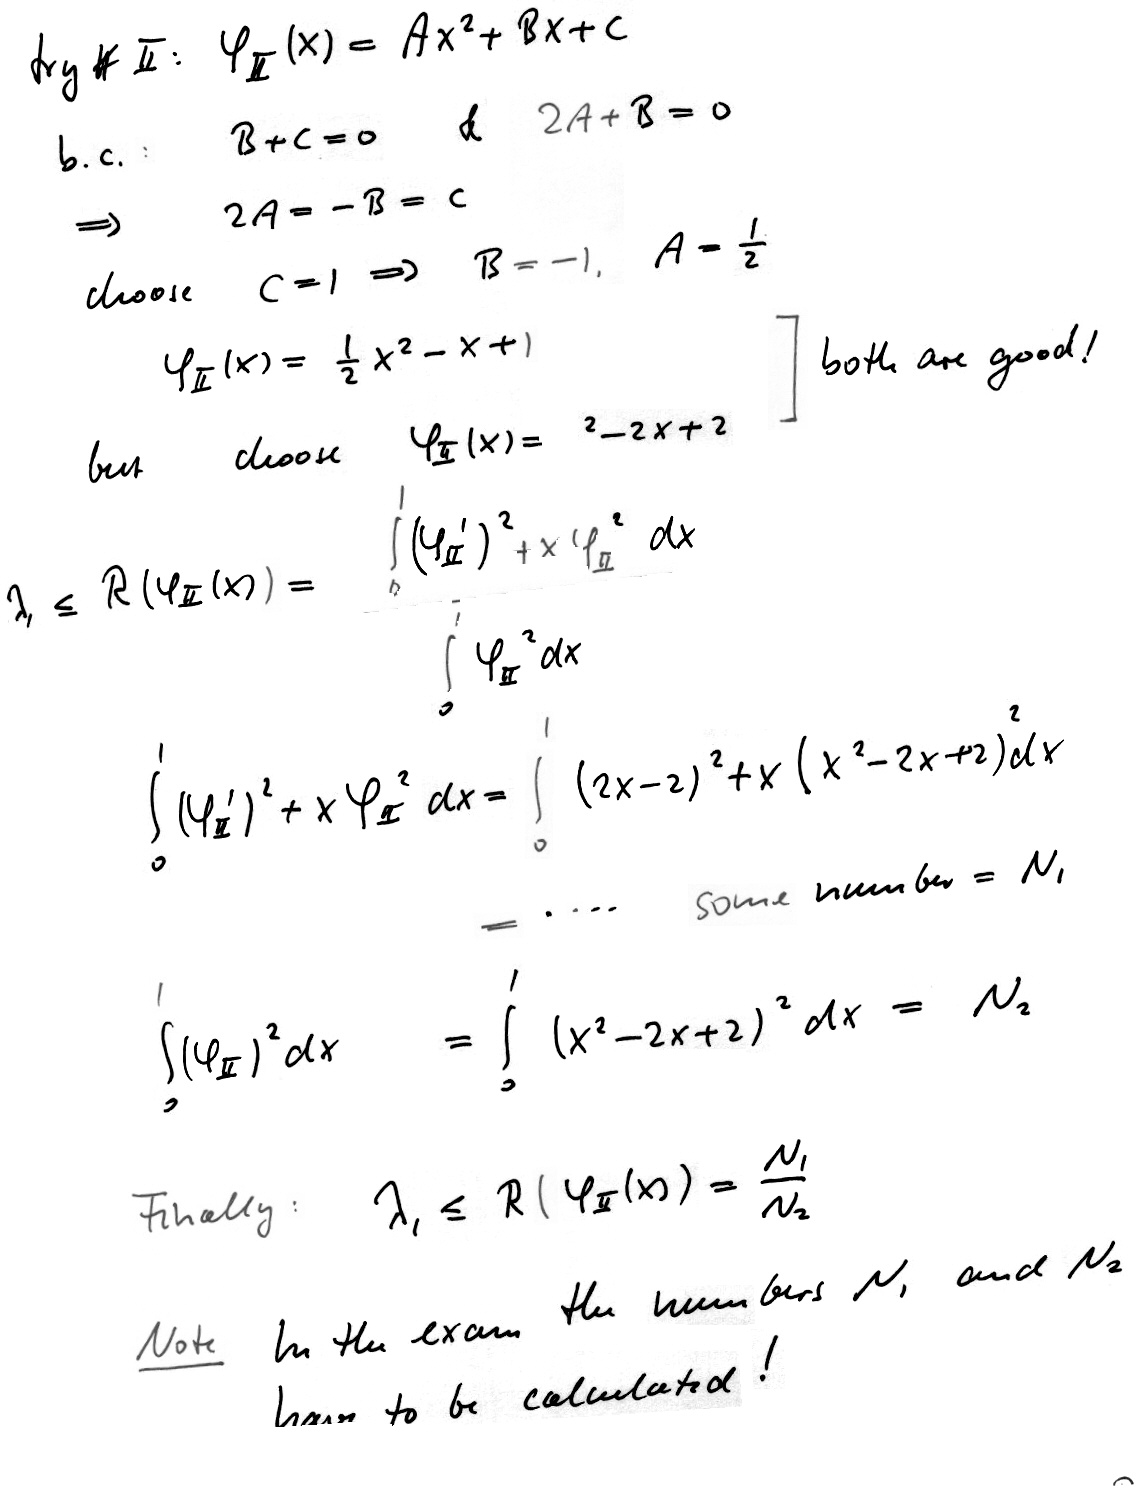 try # II: φ_II(x) = Ax² + Bx + C
b.c.: B + C = 0 & 2A + B = 0
⇒ 2A = -B = C
choose C = 1 ⇒ B = -1, A = 1/2
φ_II(x) = 1/2 x² - x + 1 ] both are good!
but choose φ_II(x) = ² - 2x + 2
λ₁ ≤ R(φ_II(x)) = ∫₀¹ (φ_II')² + x φ_II² dx / ∫₀¹ φ_II² dx
∫₀¹ (φ_II')² + x φ_II² dx = ∫₀¹ (2x-2)² + x(x² - 2x + 2)² dx
= .... some number = N₁
∫₀¹ (φ_II)² dx = ∫₀¹ (x² - 2x + 2)² dx = N₂
Finally: λ₁ ≤ R(φ_II(x)) = N₁/N₂
Note In the exam the numbers N₁ and N₂
have to be calculated!